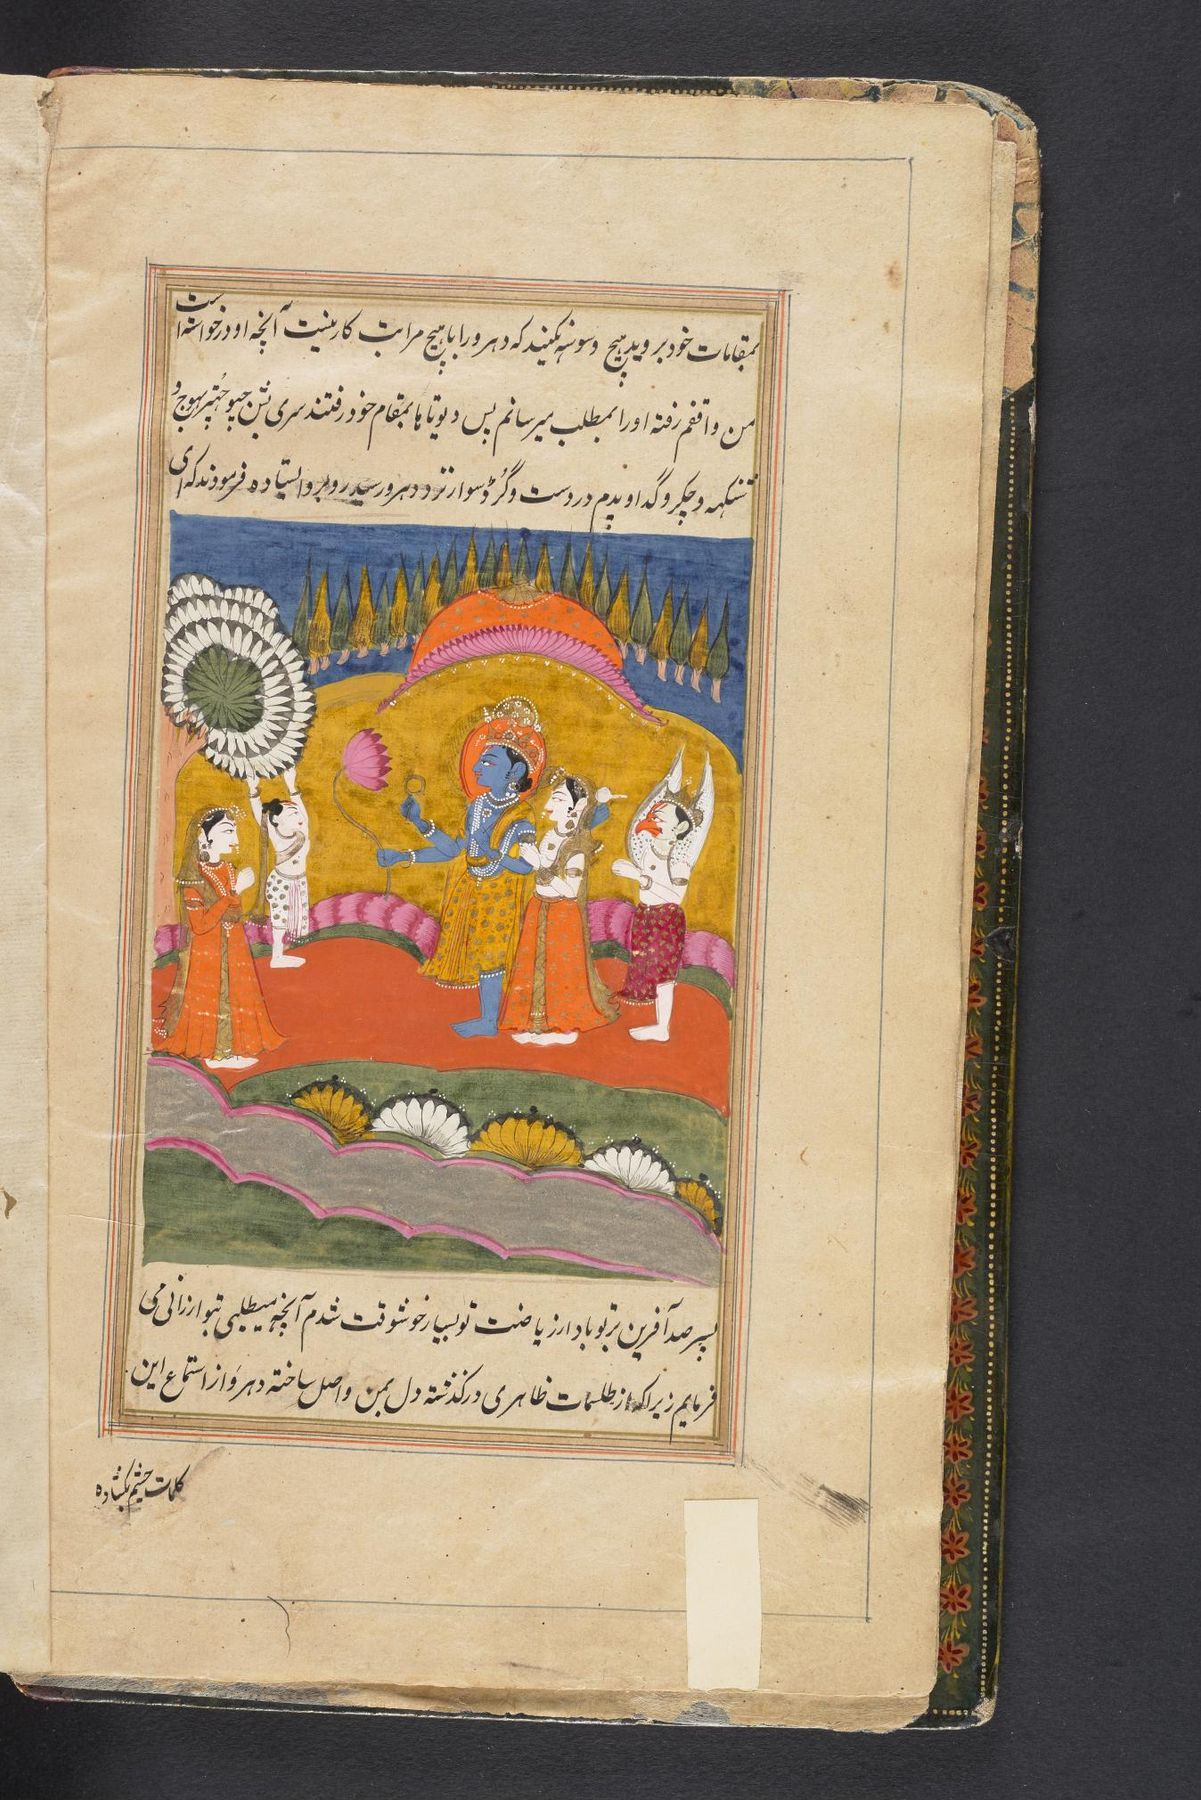 بمقامات خود بروید هیچ وسوسه مکنید که دهرو را با هیچ مراتب کار نیست آنچه او درخواسته است
من واقفم رفته او را بمطلب میرسانم پس دیوتاها بمقام خود رفتند سری بشن جیو چتربهوج و
سنکهه و چکر و گدا و پدم در دست و گرڈ سوار نزد دهرو رسیده روبرو ایستاده فرمودند که ای
پسر صد آفرین بر تو باد از ریاضت تو بسیار خوشوقت شدم آنچه میطلبی بتو ارزانی می
فرمایم زیرا که از طلسمات ظاهری درگذشته دل بمن واصل ساخته دهرو از استماع این
کلمات چشم بکشاده